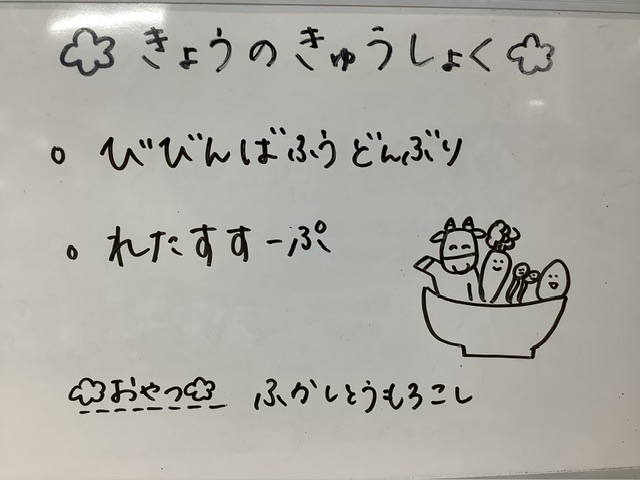 きょうのきゅうしょく
びびんばふうどんぶり
れたすすーぷ
おやつ ふかしとうもろこし